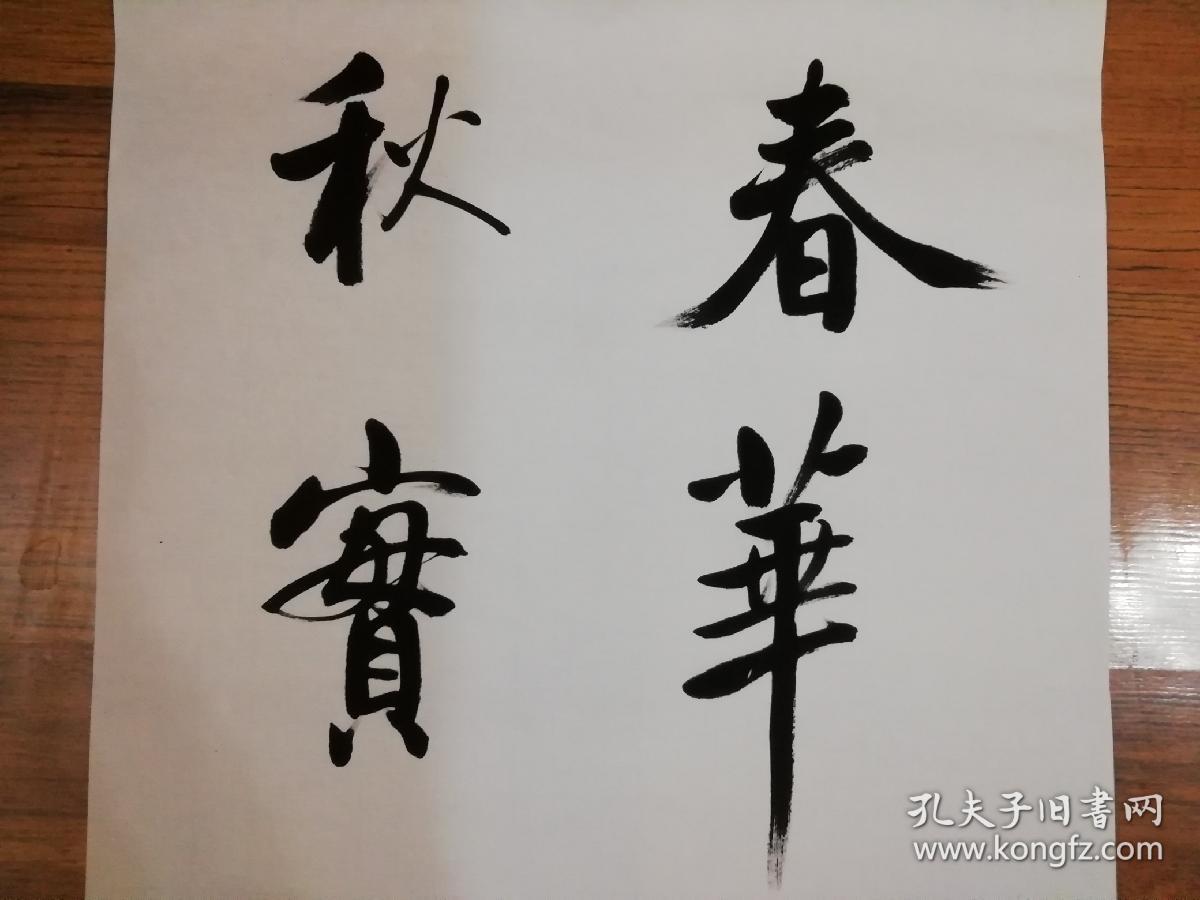 春華
秋實
孔夫子旧書网
www.kongfz.com